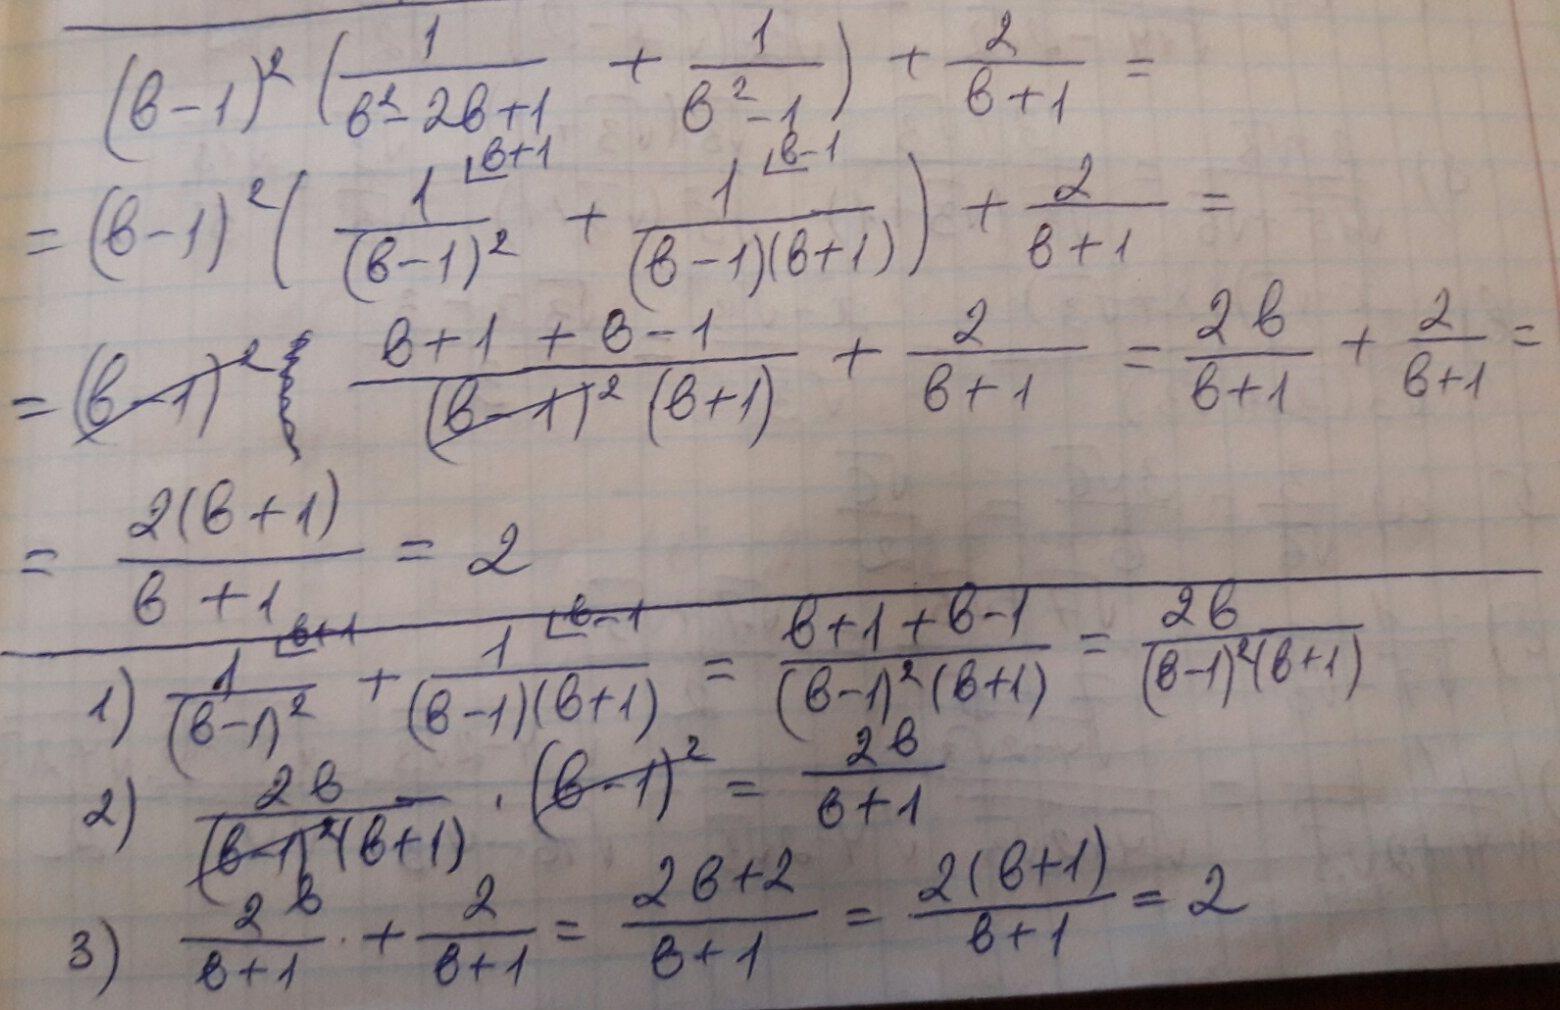 (в-1)² (1/(в²-2в+1) + 1/(в²-1)) + 2/(в+1) =
= (в-1)² (1⌊в+1/(в-1)² + 1⌊в-1/((в-1)(в+1))) + 2/(в+1) =
= (в-1)² (в+1+в-1)/((в-1)²(в+1)) + 2/(в+1) = 2в/(в+1) + 2/(в+1) =
= 2(в+1)/(в+1) = 2
1) 1⌊в+1/(в-1)² + 1⌊в-1/((в-1)(в+1)) = (в+1+в-1)/((в-1)²(в+1)) = 2в/((в-1)²(в+1))
2) 2в/((в-1)²(в+1)) · (в-1)² = 2в/(в+1)
3) 2в/(в+1) + 2/(в+1) = (2в+2)/(в+1) = 2(в+1)/(в+1) = 2